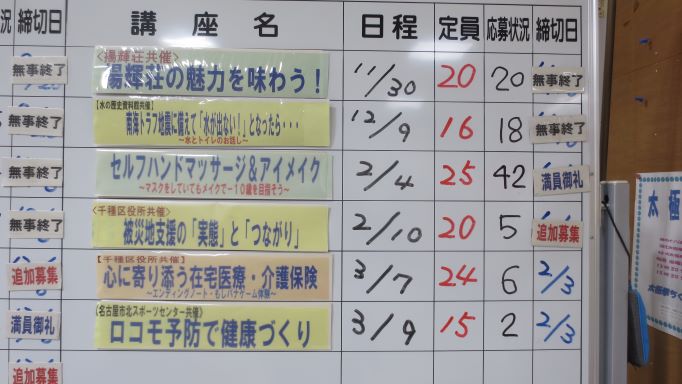 況 締切日 講座名 日程 定員 応募状況 締切日
無事終了 <揚輝荘共催> 揚輝荘の魅力を味わう! 11/30 20 20 無事終了
無事終了 【水の歴史資料館共催】 南海トラフ地震に備えて「水が出ない!」となったら・・・ ~水とトイレのお話し~ 12/9 16 18 無事終了
無事終了 セルフハンドマッサージ&アイメイク ~マスクをしていてもメイクで-10歳を目指そう~ 2/4 25 42 満員御礼
無事終了 <千種区役所共催> 被災地支援の「実態」と「つながり」 2/10 20 5 追加募集
追加募集 【千種区役所共催】 心に寄り添う在宅医療・介護保険 ~エンディングノート・もしバナゲーム体験~ 3/7 24 6 2/3
満員御礼 (名古屋市北スポーツセンター共催) ロコモ予防で健康づくり 3/9 15 2 2/3
追加募集
太極